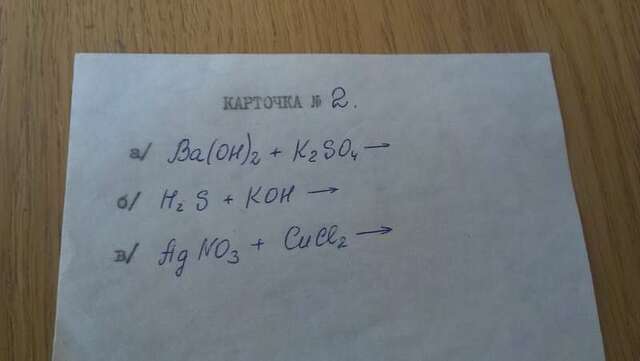 КАРТОЧКА № 2.
а/ Ba(OH)2 + K2SO4 →
б/ H2S + KOH →
в/ AgNO3 + CuCl2 →